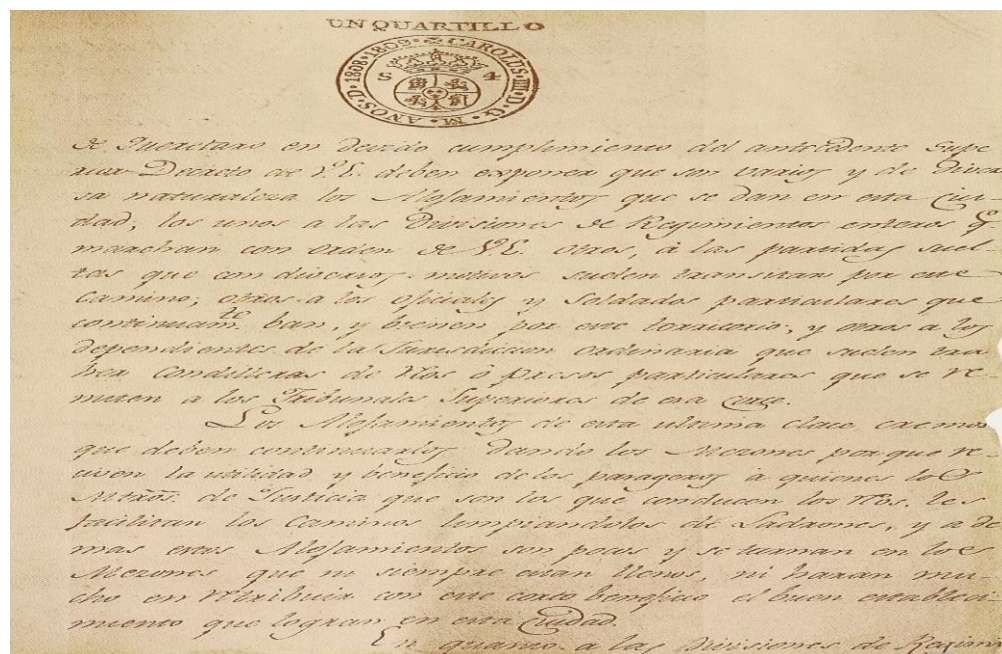 UN QUARTILLO
CAROLUS·IIII·D·G· M·ANOS·D·1808·1809·
S 4
de Queretaro en devido cumplimiento del antecedente Supe
rior Decreto de V.E. deben exponer que son varios y de diver
sa naturaleza los Alojamientos que se dan en esta Ciu-
dad, los unos a las Divisiones de Regimientos enteros q.e
marchan con orden de V.E. otros, à las partidas suel-
tas que con diversos motivos suelen transitar por este
Camino; otros a los oficiales y Soldados particulares que
continuam.te ban, y bienen por este territorio; y otros a los
dependientes de la Jurisdiccion ordinaria que suelen tra
her Condilleras de Rños ò presos particulares que se re-
miten a los Tribunales Superiores de esa Corte.
Los Alojamientos de esta ultima clace
que deben continuarlos dando los Mezones porque re-
usen la utilidad y beneficio de los parageros à quienes los
Mtros. de Justicia que son los que conducen los reos. les
facilitan los Caminos limpiandolos de Ladrones, y a de
mas estos Alojamientos son pocos y se turnan en los
Mezones que ni siempre estan llenos, ni haran mu-
cho en retribuir con este corto beneficio el buen estableci-
miento que logran en esta Ciudad.
En quanto a las Divisiones de Regim